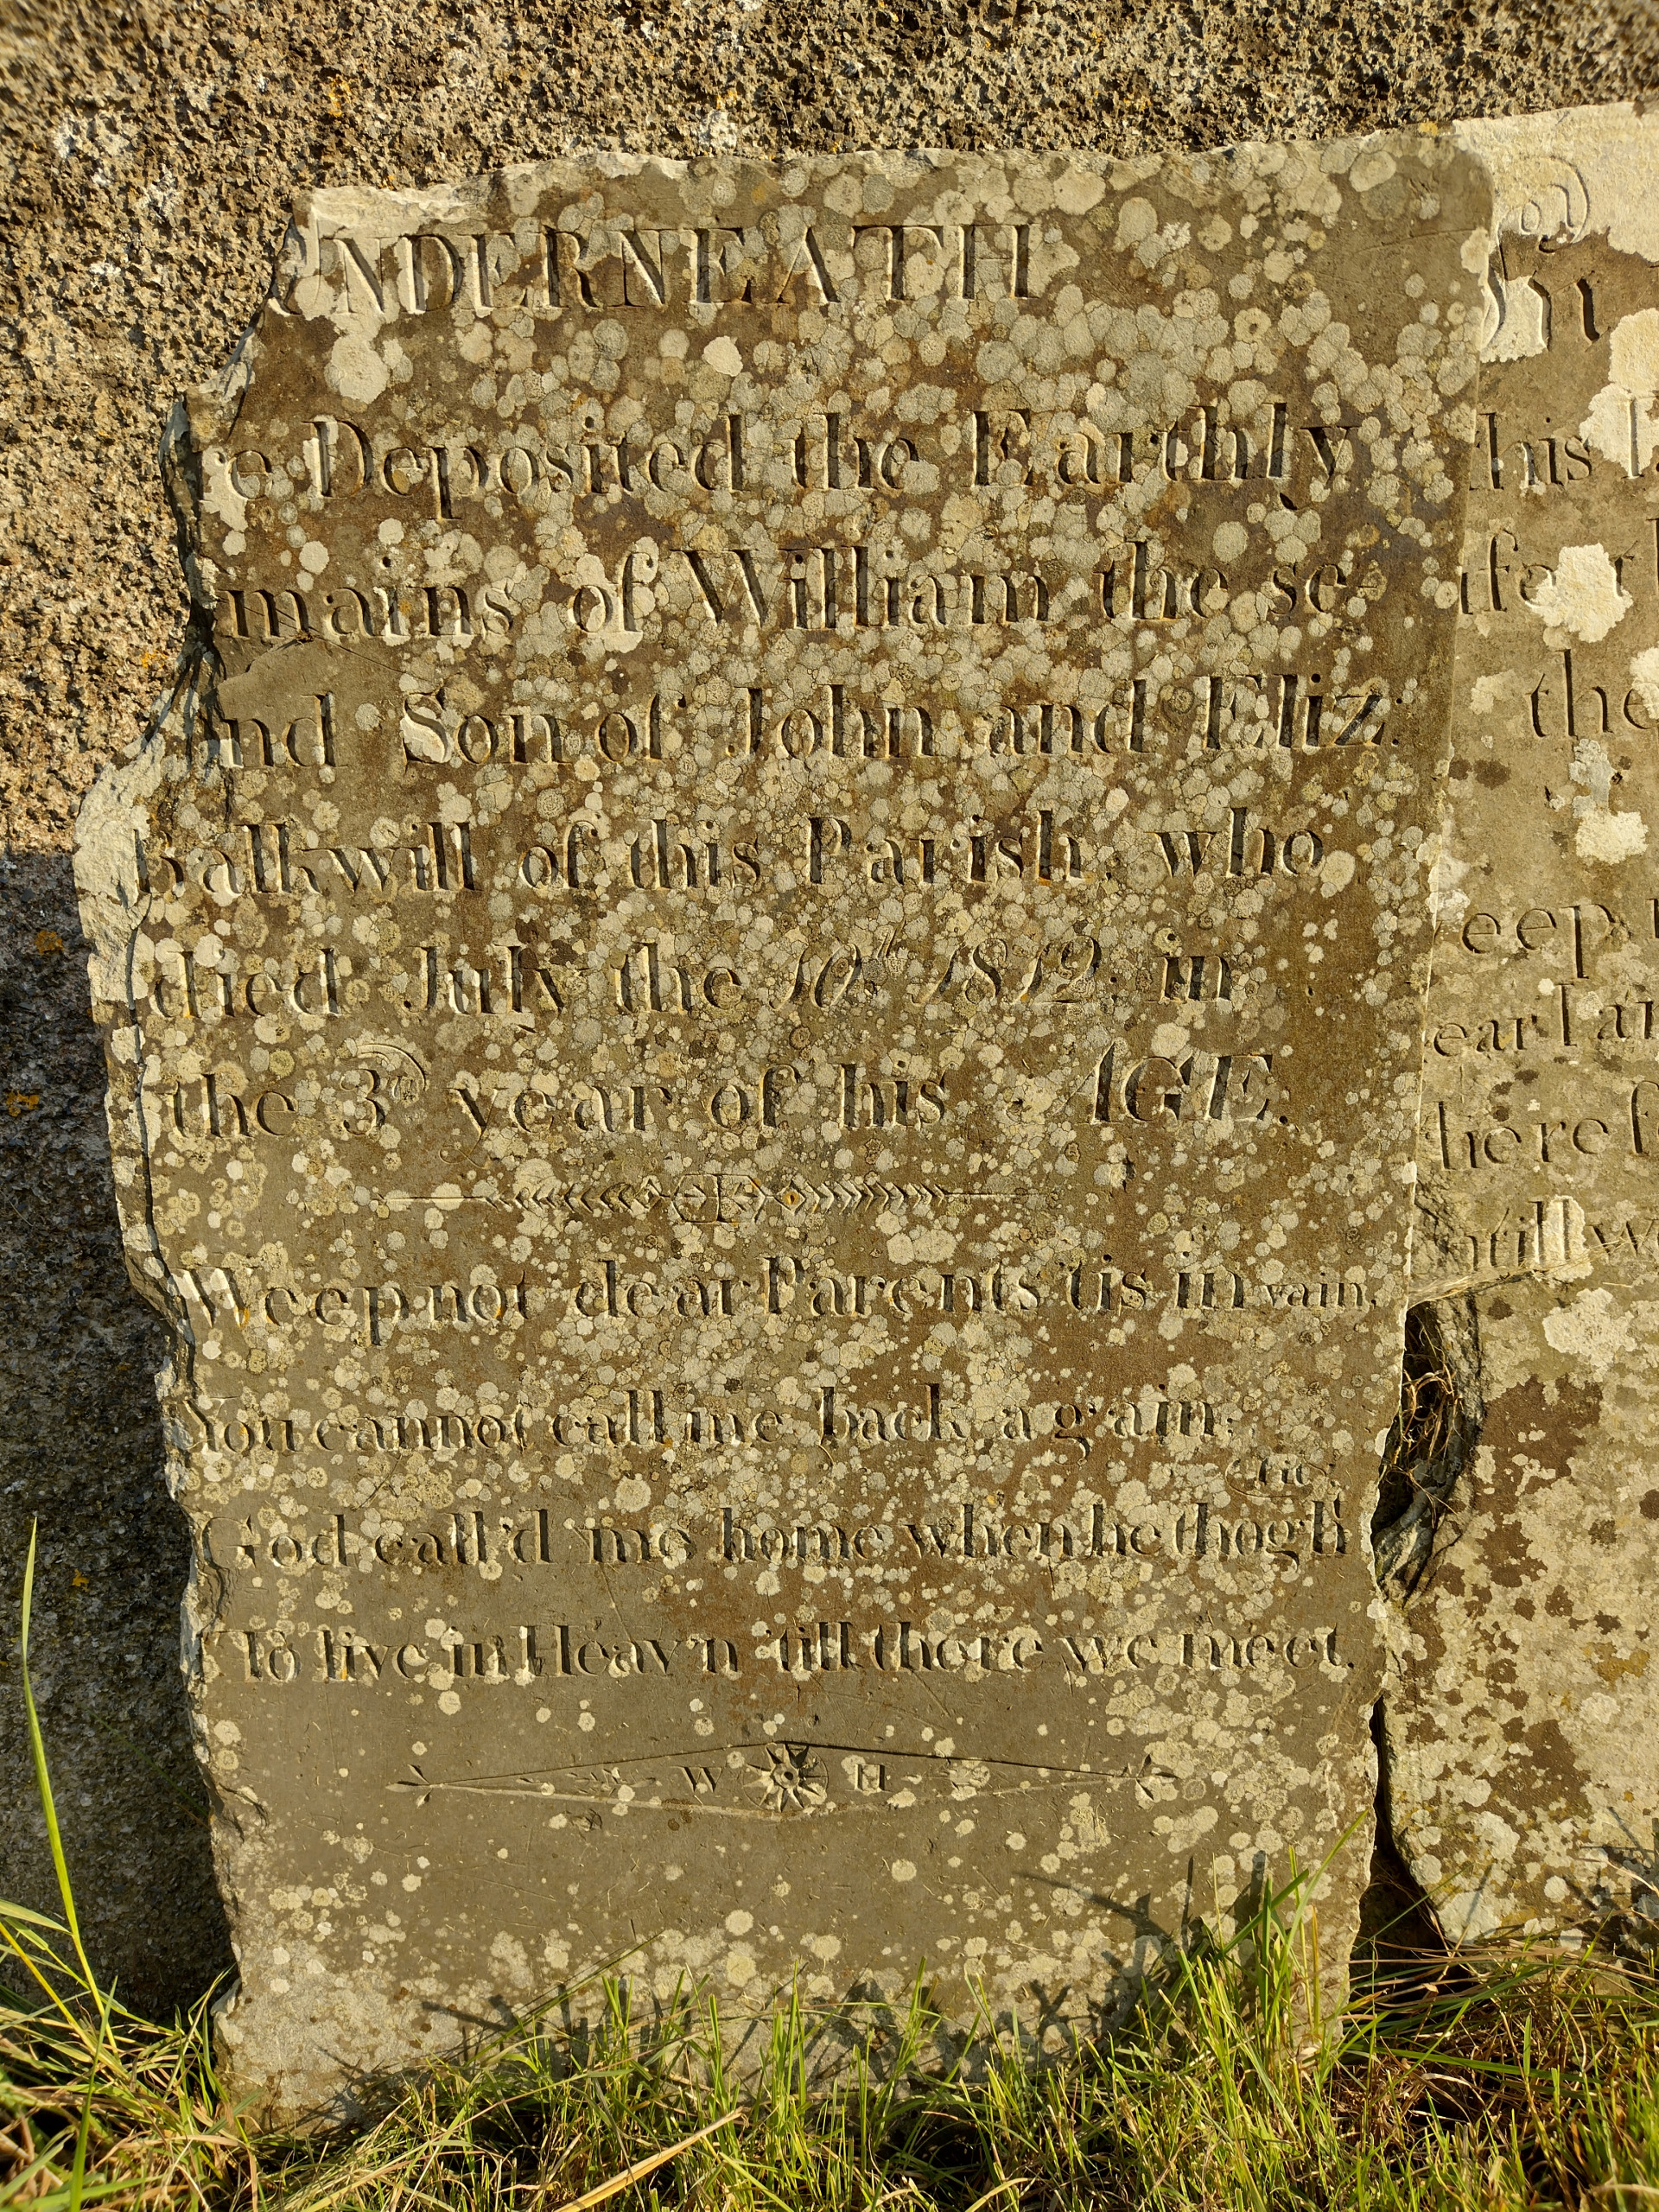 UNDERNEATH
re Deposited the Earthly
mains of William the se-
ond Son of John and Eliz:
balkwill of this Parish, who
died July the 10th 1812: in
the 3rd year of his AGE.
Weep not dear Parents tis in vain,
You cannot call me back again;
God call'd me home when he thogh't fit
To live in Heav'n till there we meet.
W H
his
the
eep
ear
here
till we